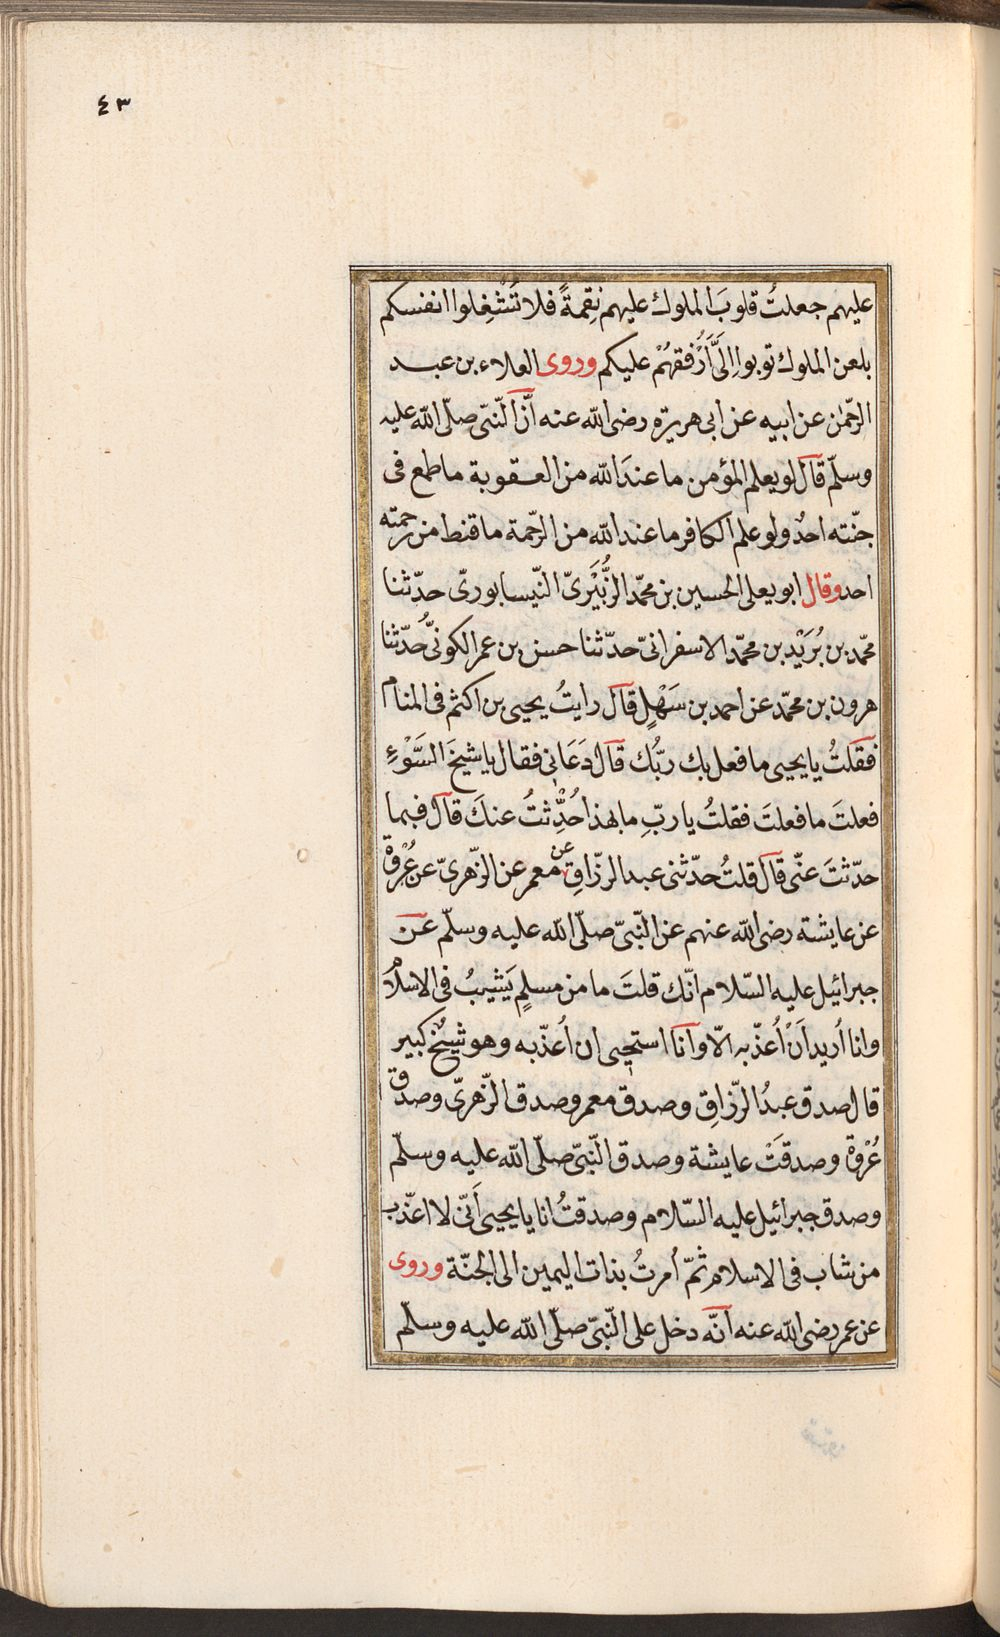 ٤٣
عليهم جعلتُ قلوبَ الملوك عليهم نِقمةً فلا تَشْغِلوا انفسكم
بلعن الملوك توبوا اِلَىَّ اَرْفقهُمْ عليكم وروى العلاء بن عبد
الرّحمٰن عن ابيه عن ابى هريرة رضى اللّٰه عنه اَنَّ النّبىّ صلّى اللّٰه عليه
وسلّم قال لو يعلم المؤمن ما عندَ اللّٰه من العقوبة ما طمع فى
جنّته احدٌ ولو علم الكافر ما عند اللّٰه من الرّحمة ما قنط من رحمته
احد وقال ابو يعلى الحسين بن محمّد الزُّبَيْرىّ النّيسابورىّ حدّثنا
محمّد بن بُرَيْد بن محمّد الاسفرانىّ حدّثنا حسن بن عمر الكوفىُّ حدّثنا
هرون بن محمّد عن احمد بن سَهْلٍ قال رايتُ يحيى بن اكثم فى المنام
فقلتُ يا يحيى ما فعل بك ربُّك قال دَعَانى فقال يا شيخَ السَّوْءِ
فعلتَ ما فعلتَ فقلتُ يا ربِّ ما بهذا حُدِّثتُ عنكَ قال فبما
حدّثتَ عنّى قال قلتُ حدّثنى عبد الرزّاقِ عن معمر عن الزّهرىّ عن عُرْوة
عن عايشة رضى اللّٰه عنهم عن النّبىّ صلّى اللّٰه عليه وسلّم عن
جبرائيل عليه السّلام انّك قلتَ ما من مسلمٍ يَشيبُ فى الاسلام
وانا اُريد اَنْ اُعذّبه الّا وانا استحيى ان اُعذّبه وهو شيخٌ كبير
قال صدق عبدُ الرّزاقِ وصدق معمر وصدق الزّهرىّ وصدق
عُرْوة وصدقَتْ عايشة وصدق النّبىّ صلّى اللّٰه عليه وسلّم
وصدق جبرائيل عليه السّلام وصدقتُ انا يا يحيى اَنّى لا اعذّب
من شاب فى الاسلام ثمّ اُمرتُ بذات اليمين الى الجنّة وروى
عن عمر رضى اللّٰه عنه انّه دخل على النّبىّ صلّى اللّٰه عليه وسلّم